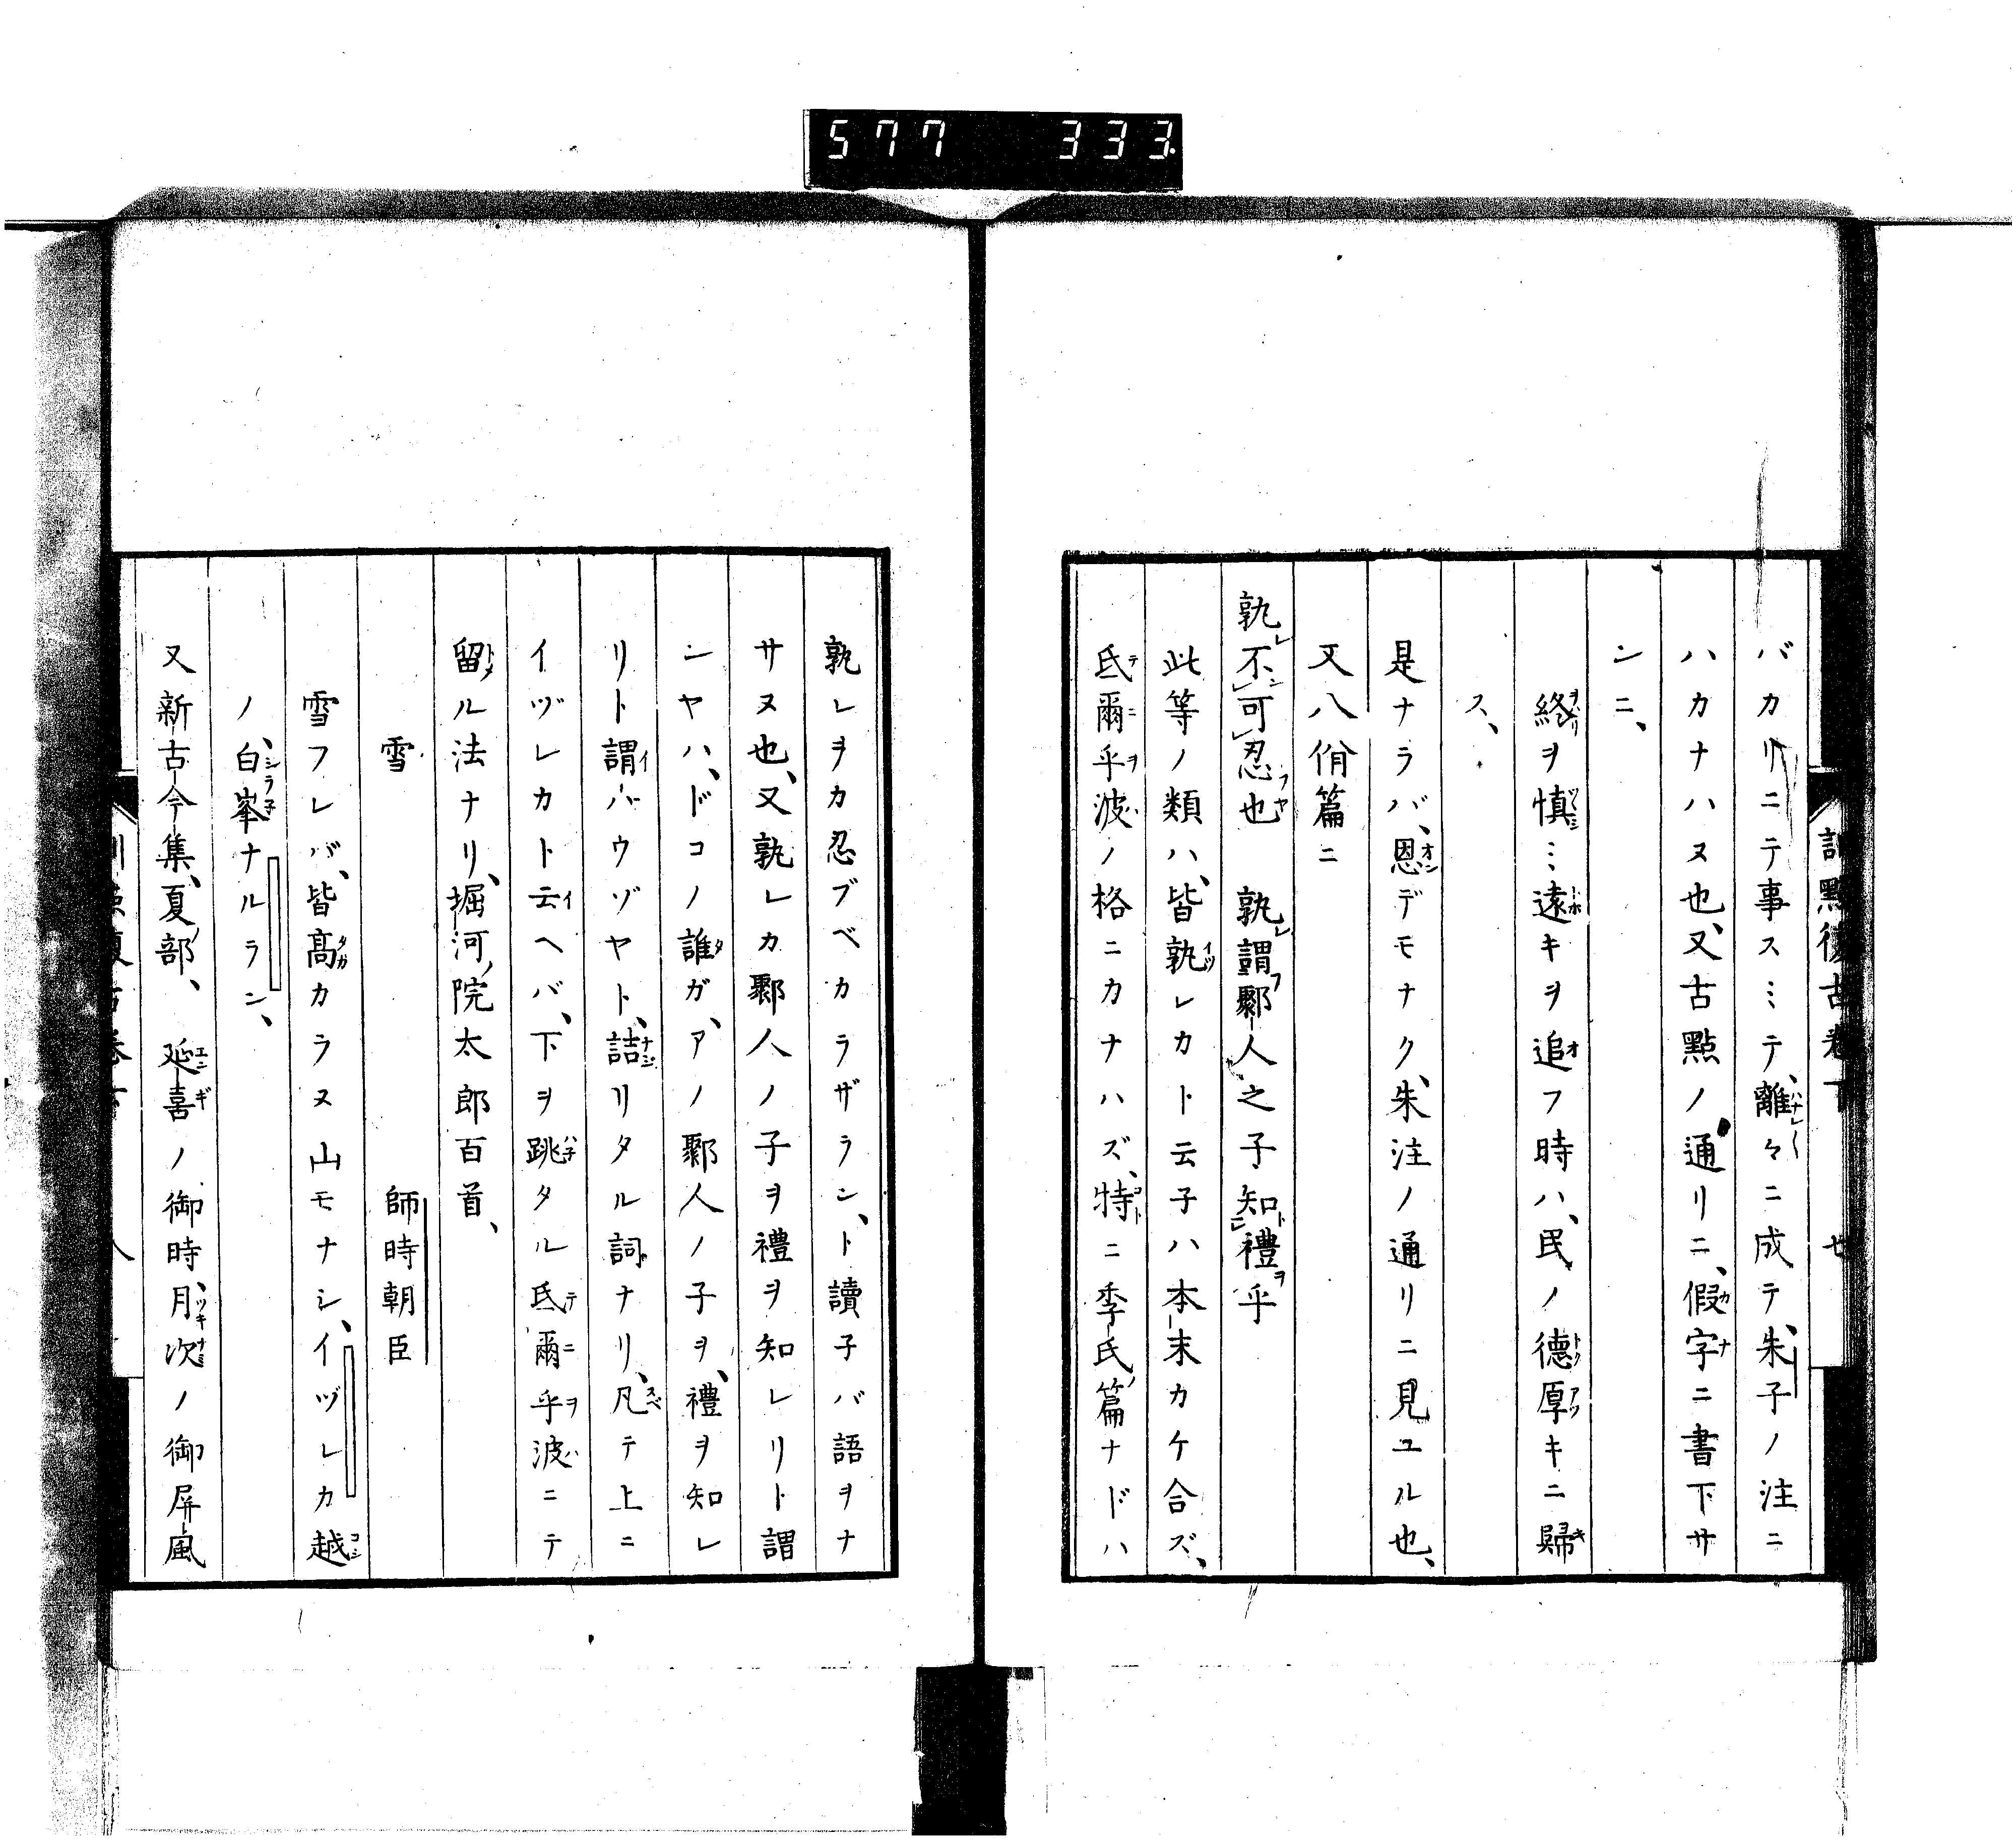 577 333
バカリニテ事スミテ、離々ニ成テ、朱子ノ注ニ
ハカナハヌ也、又古點ノ通リニ、假字ニ書下サ
ンニ、
終ヲ慎ミ遠キヲ追フ時ハ、民ノ德厚キニ歸
ス、
是ナラバ、恩デモナク、朱注ノ通リニ見ユル也、
又八佾篇ニ
孰不可忍也 孰謂鄹人之子知禮乎
此等ノ類ハ、皆孰レカト云子ハ本末カケ合ズ、
氐爾乎波ノ格ニカナハズ、特ニ季氏篇ナドハ
孰レヲカ忍ブベカラザラン、ト讀子バ語ヲナ
サヌ也、又孰レカ鄹人ノ子ヲ禮ヲ知レリト謂
ンヤハ、ドコノ誰ガ、アノ鄹人ノ子ヲ、禮ヲ知レ
リト謂ハウゾヤト、詰リタル詞ナリ、凡テ上ニ
イヅレカト云ヘバ、下ヲ跳タル氐爾乎波ニテ
留ル法ナリ、堀河ノ院太郎百首、
雪 師時朝臣
雪フレバ、皆髙カラヌ山モナシ、イヅレカ越
ノ、白峯ナルラン、
又新古今集、夏ノ部、 延喜ノ御時月次ノ御屏風